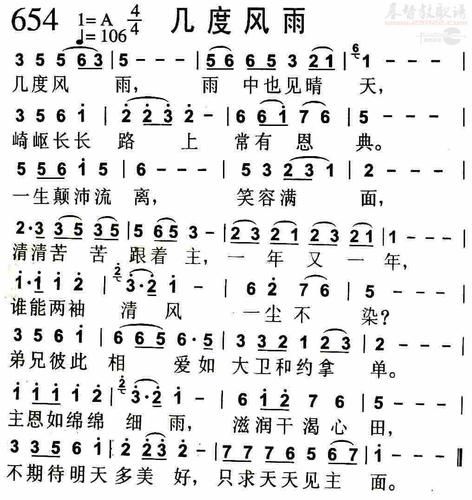 654 1=A 4/4 ♩=106 几度风雨
3 5 5 6 3 | 5 - - - | 5 6 5 5 3 2 1 | 1 - - - |
几度风 雨, 雨 中也见晴 天,
3 5 6 1 | 2 2 3 2 - | 6 6 1 3 2 | 2 - - - |
崎岖长长 路 上 常有 恩 典。
5 5 6 1 5 | 6 - - - | 5 6 5 3 1 | 2 - - - |
一生颠沛流 离, 笑容满 面,
2·3 3 5 3 5 | 5 3 2 3 - | 2 3 2 1 2 3 2 1 | 1 - - - |
清清苦 苦 跟着 主, 一 年 又 一 年,
1·1 1 2 | 3·2 1 - | 6 2 7 6 | 5 - - - |
谁能两袖 清 风 一尘 不 染?
3 5 6 1 | 6 6 5 6·5 | 3 3 2 1 2 3 | 2 - - - |
弟兄彼此 相 爱如 大卫和约拿 单。
1 1 1 1 2 | 3·2 1 - | 2 1 7 6 | 5 - - - |
主恩如绵绵 细 雨, 滋润干渴 心 田,
3 3 5 6 1 | 2 2 3 2 - | 7 7 7 6 5 6 7 | 1 - - - ‖
不期待明天多美 好, 只求天天见主 面。